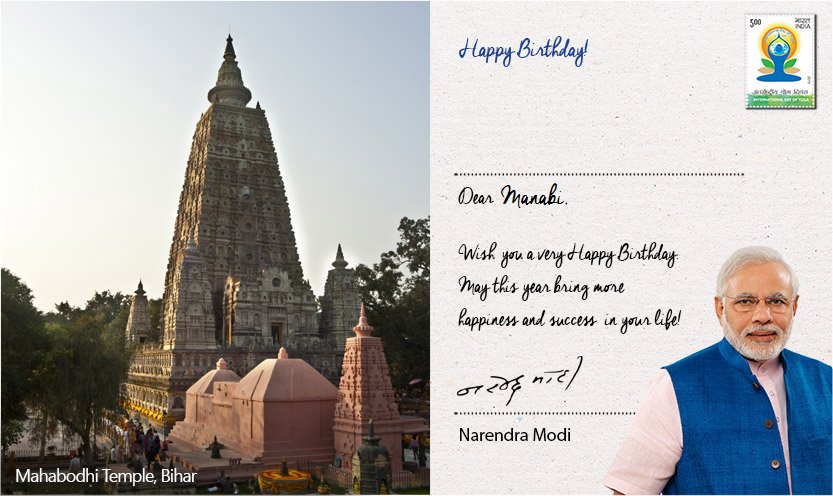 Happy Birthday!
5.00 भारत
INDIA
अंतर्राष्ट्रीय योग दिवस
INTERNATIONAL DAY OF YOGA
Dear Manabi,
Wish you a very Happy Birthday.
May this year bring more
happiness and success in your life!
नरेन्द्र मोदी
Narendra Modi
Mahabodhi Temple, Bihar